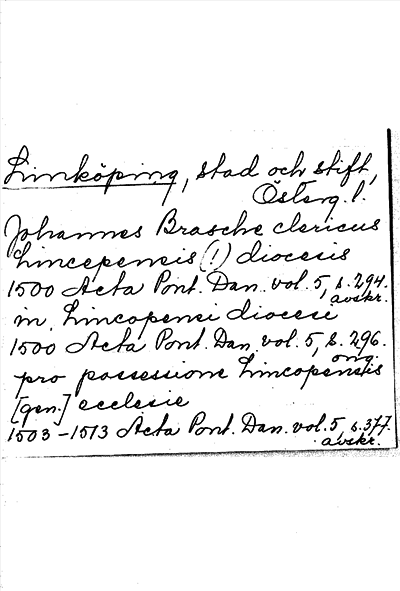 Linköping, stad och stift,
Österg.l.
Johannes Brasche clericus
Lincepensis (!) diocesis
1500 Acta Pont. Dan. vol. 5, s. 294.
avskr.
in Lincopensi diocesi
1500 Acta Pont. Dan. vol. 5, s. 296.
orig.
pro possessione Lincopensis
[gen.] ecclesie
1503-1513 Acta Pont. Dan. vol. 5, s. 377.
avskr.